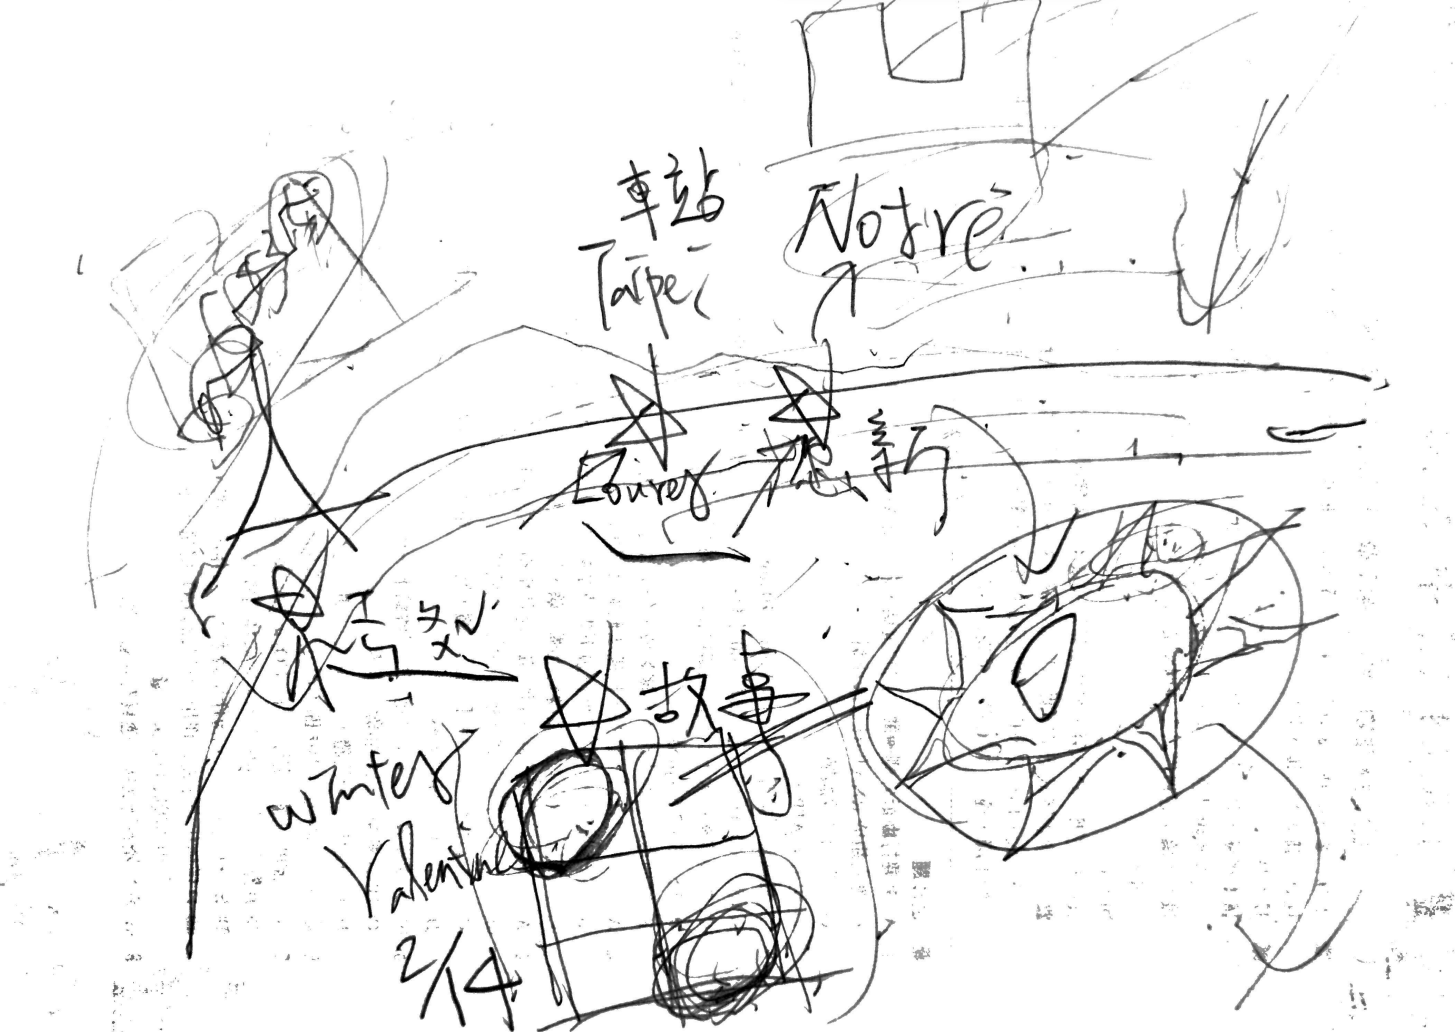 車站
Taipei
Notre
Louvre
故事
winter
Valentine
2/14